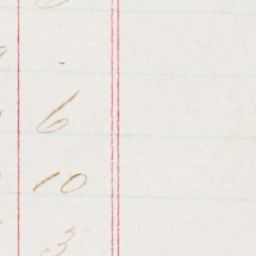 6
10
3